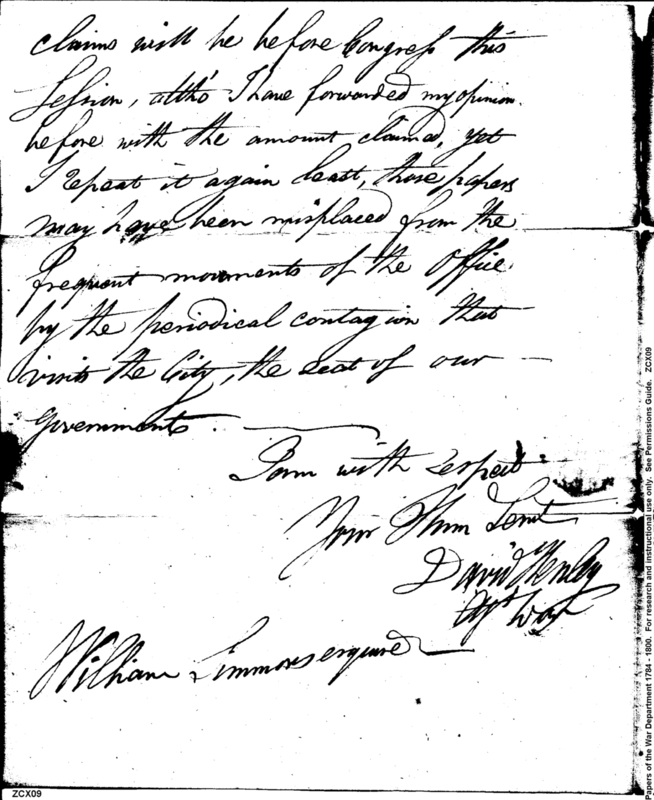 claims will be before Congress this
Session, altho' I have forwarded my opinion
before with the amount claimed, yet
I repeat it again least, those papers
may have been misplaced from the
frequent movements of the Office
by the periodical contagion that
visits the City, the seat of our
Governments.
I am with respect
Your Hum Servt
David Henley
Agt War
William Simmons esquire
ZCX09
Papers of the War Department 1784 - 1800. For research and instructional use only. See Permissions Guide. ZCX09